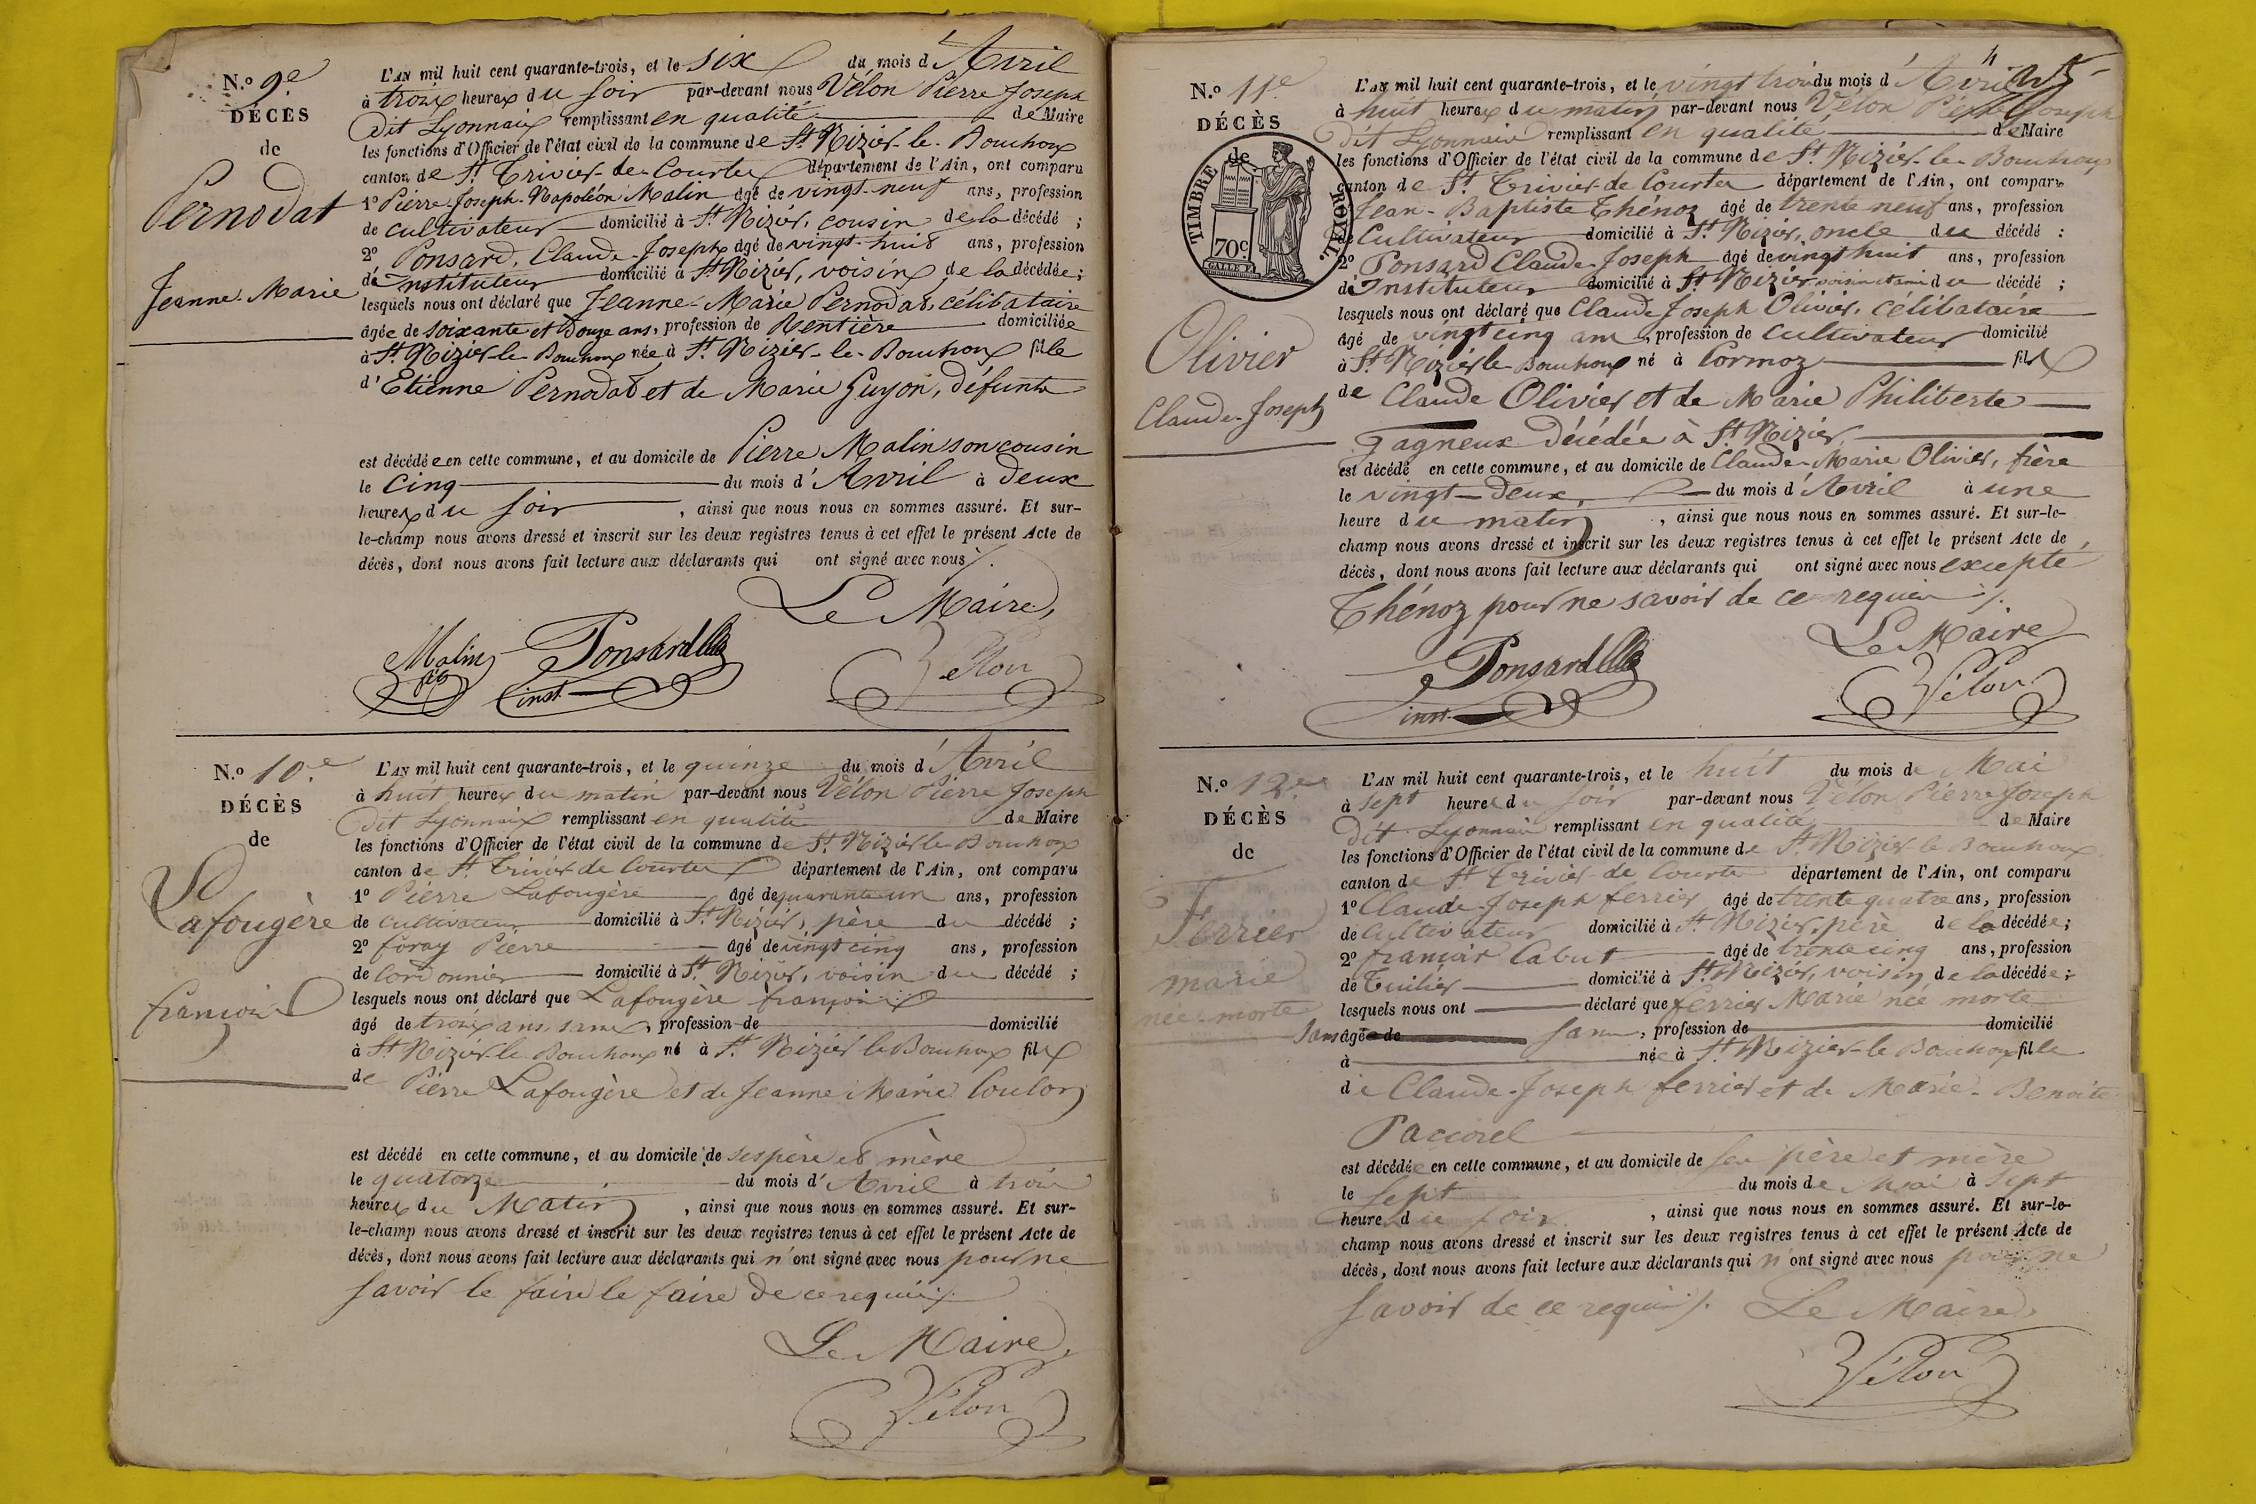 N.º 9.e
DÉCÈS
de
Pernodat
Jeanne-Marie
L'AN mil huit cent quarante-trois, et le six du mois d'Avril
à trois heures du soir par-devant nous Vélon Pierre Joseph
dit Lyonnais remplissant en qualité de Maire
les fonctions d'Officier de l'état civil de la commune de St Nizier-le-Bouchoux
canton de St Trivier-de-Courtes département de l'Ain, ont comparu
1º Pierre-Joseph-Napoléon Malin âgé de vingt-neuf ans, profession
de cultivateur domicilié à St Nizier, cousin de la décédé ;
2º Ponsard, Claude-Joseph âgé de vingt-huit ans, profession
de Instituteur domicilié à St Nizier, voisin de la décédée ;
lesquels nous ont déclaré que Jeanne-Marie Pernodat, célibataire
âgée de soixante et douze ans, profession de Rentière domiciliée
à St Nizier-le-Bouchoux née à St Nizier-le-Bouchoux fille
d'Etienne Pernodat et de Marie Guyon, défunts
est décédée en cette commune, et au domicile de Pierre Malin son cousin
le cinq du mois d'Avril à deux
heures du soir, ainsi que nous nous en sommes assuré. Et sur-
le-champ nous avons dressé et inscrit sur les deux registres tenus à cet effet le présent Acte de
décès, dont nous avons fait lecture aux déclarants qui ont signé avec nous ./.
Le Maire,
Malin fils Ponsard Cde Vélon
inst.
N.º 10.e
DÉCÈS
de
Lafougère
françois
L'AN mil huit cent quarante-trois, et le quinze du mois d'Avril
à huit heures du matin par-devant nous Vélon Pierre Joseph
Dit Lyonnais remplissant en qualité de Maire
les fonctions d'Officier de l'état civil de la commune de St Nizier le Bouchoux
canton de St Trivier de Courtes département de l'Ain, ont comparu
1º Pierre Lafougère âgé de quarante un ans, profession
de cultivateur domicilié à St Nizier, père du décédé ;
2º foray Pierre âgé de vingt cinq ans, profession
de Cordonnier domicilié à St Nizier, voisin du décédé ;
lesquels nous ont déclaré que Lafougère françois
âgé de trois ans, sans, profession de domicilié
à St Nizier-le-Bouchoux né à St Nizier le Bouchoux fils
de Pierre Lafougère et de Jeanne Marie Coulon
est décédé en cette commune, et au domicile de ses père et mère
le quatorze du mois d'Avril à trois
heures du Matin, ainsi que nous nous en sommes assuré. Et sur-
le-champ nous avons dressé et inscrit sur les deux registres tenus à cet effet le présent Acte de
décès, dont nous avons fait lecture aux déclarants qui n'ont signé avec nous pour ne
savoir le faire le faire de ce requis ./.
Le Maire,
Vélon
4
N.º 11e
DÉCÈS
de
TIMBRE ROYAL
70c.
Olivier
Claude-Joseph
L'AN mil huit cent quarante-trois, et le vingt trois du mois d'Avril
à huit heures du matin par-devant nous Vélon Pierre Joseph
dit Lyonnais remplissant en qualité de Maire
les fonctions d'Officier de l'état civil de la commune de St Nizier-le-Bouchoux
canton de St Trivier-de-Courtes département de l'Ain, ont comparu
Jean-Baptiste Thénoz âgé de trente neuf ans, profession
de Cultivateur domicilié à St Nizier, oncle du décédé ;
2º Ponsard Claude-Joseph âgé de vingt huit ans, profession
de Instituteur domicilié à St Nizier voisin et ami du décédé ;
lesquels nous ont déclaré que Claude Joseph Olivier, célibataire
âgé de vingt cinq ans, profession de cultivateur domicilié
à St Nizier le Bouchoux né à Cormoz fils
de Claude Olivier et de Marie Philiberte
Gagneux Décédée à St Nizier
est décédé en cette commune, et au domicile de Claude-Marie Olivier, frère
le vingt-deux, du mois d'Avril à une
heure du matin, ainsi que nous nous en sommes assuré. Et sur-le-
champ nous avons dressé et inscrit sur les deux registres tenus à cet effet le présent Acte de
décès, dont nous avons fait lecture aux déclarants qui ont signé avec nous excepté
Thénoz pour ne savoir de ce requis ./.
Le Maire
Ponsard Cde Vélon
inst.
N.º 12e
DÉCÈS
de
Ferrier
marie
née-morte
L'AN mil huit cent quarante-trois, et le huit du mois de Mai
à sept heures du soir par-devant nous Vélon Pierre Joseph
Dit Lyonnais remplissant en qualité de Maire
les fonctions d'Officier de l'état civil de la commune de St Nizier le Bouchoux
canton de St Trivier-de Courtes département de l'Ain, ont comparu
1º Claude-Joseph ferrier âgé de trente quatre ans, profession
de Cultivateur domicilié à St Nizier, père de la décédée ;
2º françois Cabut âgé de trente cinq ans, profession
de Tuilier domicilié à St Nizier, voisin de la décédée ;
lesquels nous ont déclaré que ferrier Marie née morte
sans âgé de sans, profession de domicilié
à née à St Nizier-le Bouchoux fille
de Claude-Joseph ferrier et de Marie-Benoite
Paccorel
est décédée en cette commune, et au domicile de ses père et mère
le Sept du mois de Mai à sept
heure du soir, ainsi que nous nous en sommes assuré. Et sur-le-
champ nous avons dressé et inscrit sur les deux registres tenus à cet effet le présent Acte de
décès, dont nous avons fait lecture aux déclarants qui n'ont signé avec nous pour ne
savoir de ce requis ./. Le Maire,
Vélon